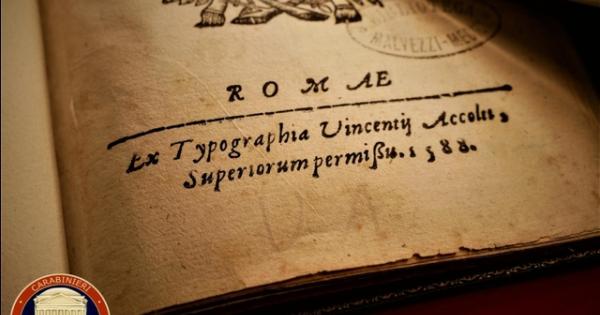 BIBLIOTECA
MALVEZZI-ME
ROMAE
Ex Typographia Vincentij Accolti,
Superiorum permißu. 1588.
CARABINIERI